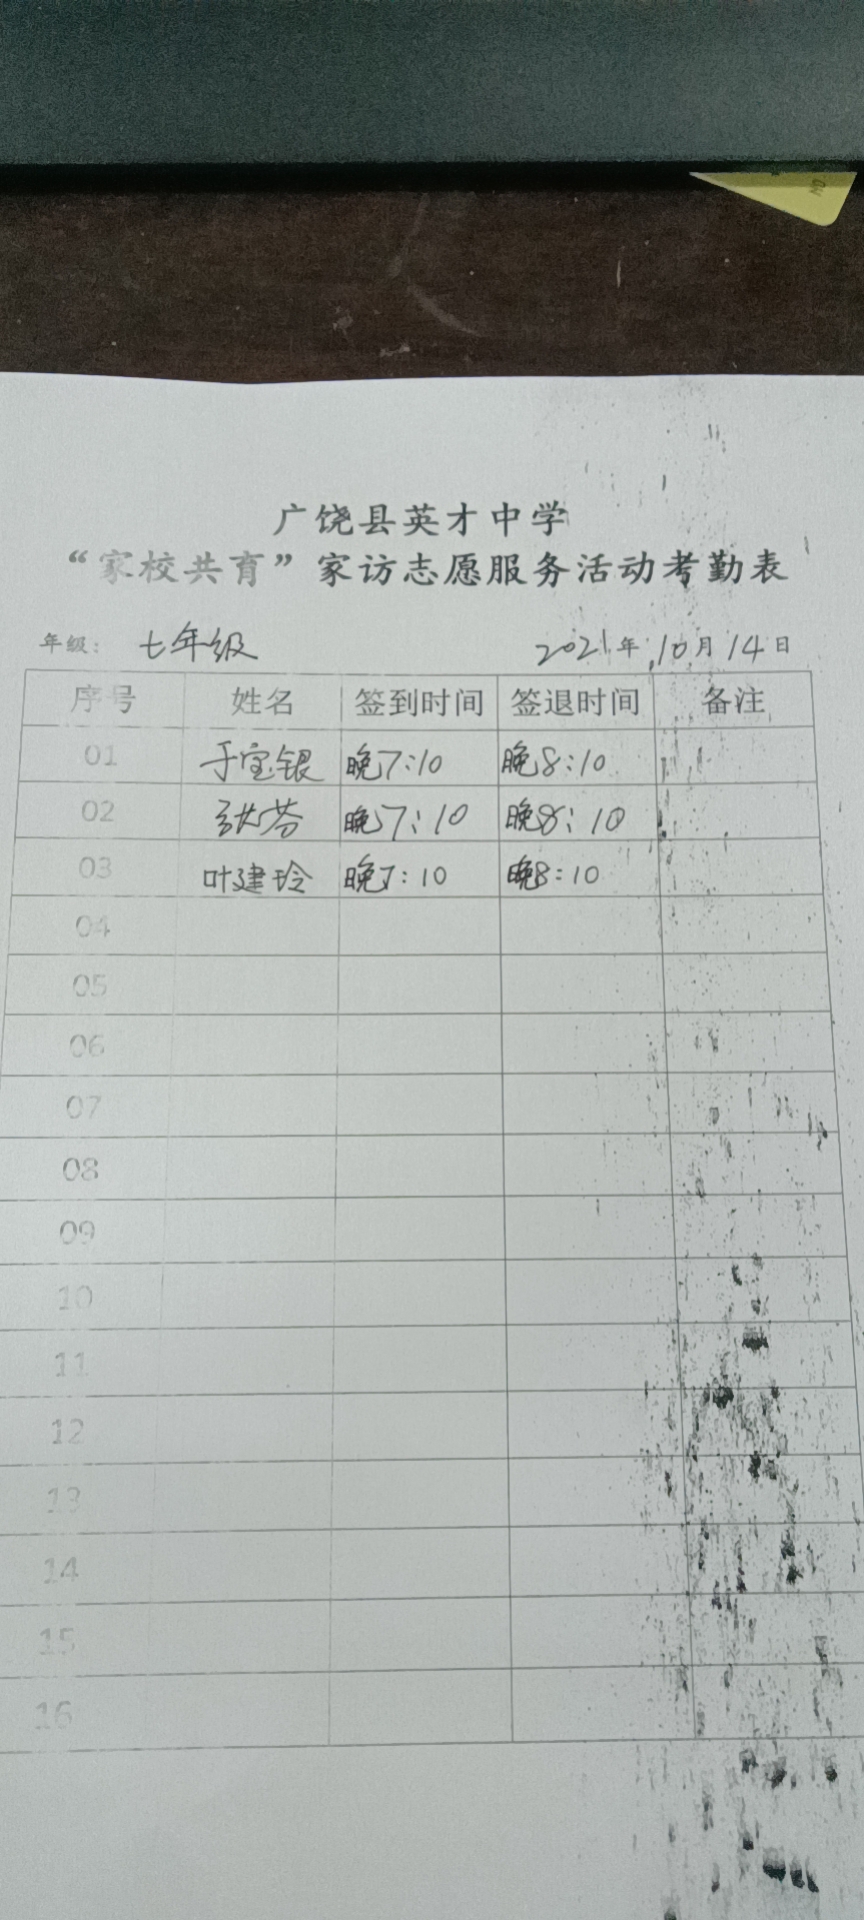 广饶县英才中学
“家校共育”家访志愿服务活动考勤表
年级： 七年级 2021年 10月14日
序号 姓名 签到时间 签退时间 备注
01 于宝银 晚7:10 晚8:10
02 晚7:10 晚8:10
03 叶建玲 晚7:10 晚8:10
04
05
06
07
08
09
10
11
12
13
14
15
16